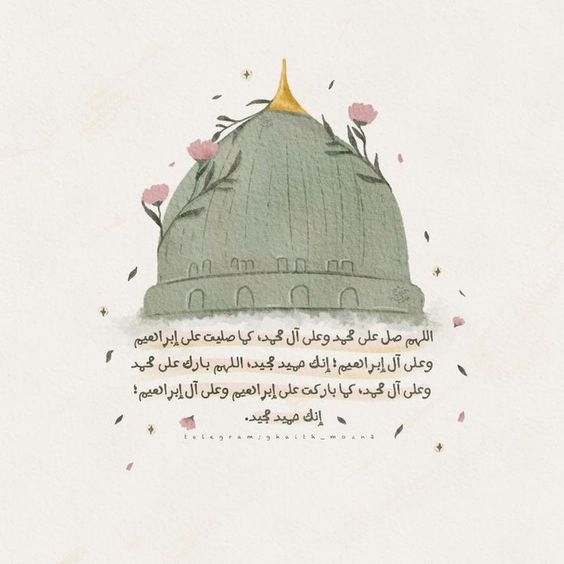 اللهم صل على محمد وعلى آل محمد، كما صليت على إبراهيم
وعلى آل إبراهيم؛ إنك حميد مجيد، اللهم بارك على محمد
وعلى آل محمد، كما باركت على إبراهيم وعلى آل إبراهيم؛
إنك حميد مجيد.
telegram;ghaith_moan2